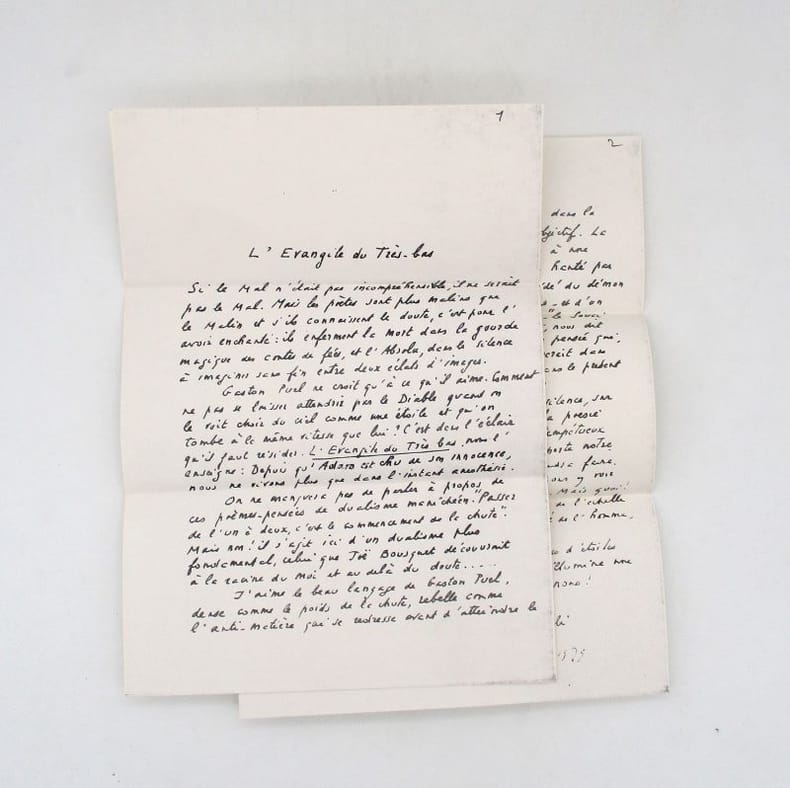 1
L'Evangile du Très-bas
Si le Mal n'était pas incompréhensible, il ne serait
pas le Mal. Mais les poètes sont plus malins que
le Malin et s'ils connaissent le doute, c'est pour l'
avoir enchanté : ils enferment la mort dans la gourde
magique des contes de fées, et l'Absolu, dans le silence
à imaginer sans fin entre deux éclats d'images.
Gaston Puel ne croit qu'à ce qu'il aime. Comment
ne pas se laisser attendrir par le Diable quand on
le voit choir du ciel comme une étoile et qu'on
tombe à la même vitesse que lui ? C'est dans l'éclair
qu'il faut résider. L'Evangile du Très bas nous l'
enseigne : Depuis qu'Adam est chu de son innocence,
nous ne vivons plus que dans l'instant anesthésié.
On ne manquera pas de parler à propos de
ces poèmes-pensées de dualisme manichéen. "Passer
de l'un à deux, c'est le commencement de la chute".
Mais non ! il s'agit ici d'un dualisme plus
fondamental, celui que Joë Bousquet découvrait
à la racine du Moi et au delà du doute.....
J'aime le beau langage de Gaston Puel,
dense comme le poids de la chute, rebelle comme
l'anti-matière qui se redresse avant d'atteindre le
2
dans la
objectif. La
à une
hanté par
du démon
et d'un
"le souci
nous dit
pensée qui,
dans
le présent
silence, sur
la pensée
notre
faire.
y voir
Mais quoi !
de l'échelle
de l'homme,
d'étoiles
illumine une